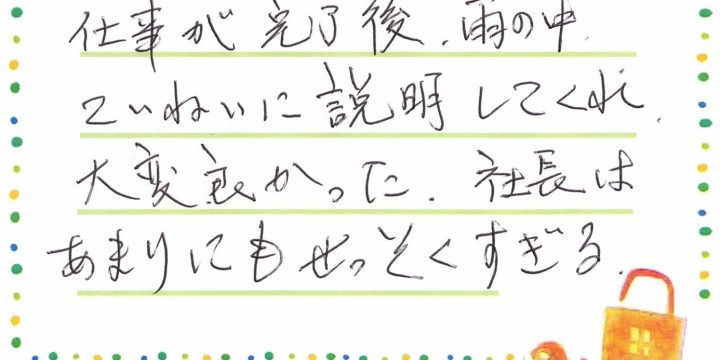 仕事が完了後、雨の中、
ていねいに説明してくれ、
大変良かった。社長は
あまりにもせっそくすぎる。